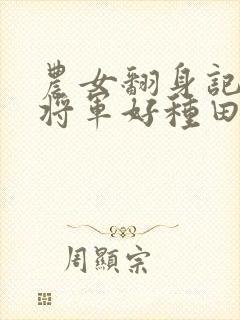 農女翻身記
將軍好種田
周顯宗